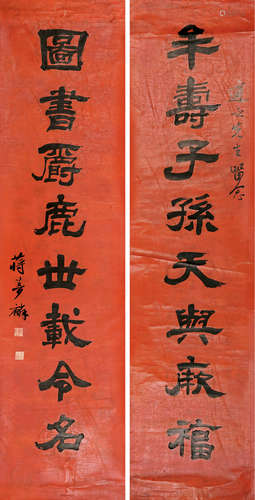 年壽子孫天與厥福
先生留念
圖書爵鹿世載令名
蔣夢麟